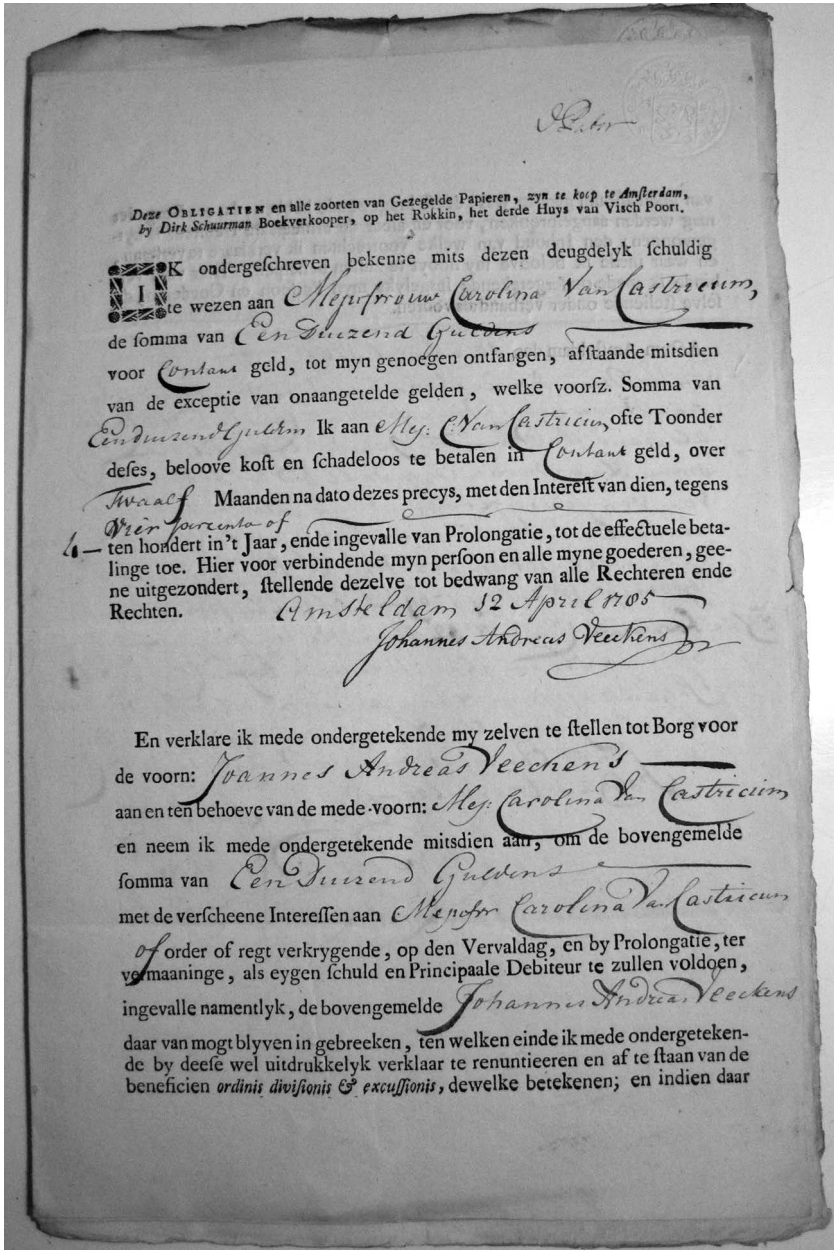 Deze OBLIGATIEN en alle zoorten van Gezegelde Papieren, zyn te koop te Amſterdam,
by Dirk Schuurman Boekverkooper, op het Rokkin, het derde Huys van Viſch Poort.
IK ondergeſchreven bekenne mits dezen deugdelyk ſchuldig
te wezen aan Mejoffrouw Carolina Van Castricum,
de ſomma van Een Duizend Guldens
voor Contant geld, tot myn genoegen ontfangen, afſtaande mitsdien
van de exceptie van onaangetelde gelden, welke voorſz. Somma van
Eenduizend Gulden Ik aan Mej: C: Van Castricum ofte Toonder
deſes, beloove koſt en ſchadeloos te betalen in Contant geld, over
Twaalf Maanden na dato dezes precys, met den Intereſt van dien, tegens
Vier percento of
4 — ten hondert in't Jaar, ende ingevalle van Prolongatie, tot de effectuele beta-
linge toe. Hier voor verbindende myn perſoon en alle myne goederen, gee-
ne uitgezondert, ſtellende dezelve tot bedwang van alle Rechteren ende
Rechten. Amsteldam 12 April 1785
Johannes Andreas Veeckens
En verklare ik mede ondergetekende my zelven te ſtellen tot Borg voor
de voorn: Joannes Andreas Veeckens
aan en ten behoeve van de mede-voorn: Mej: Carolina Van Castricum
en neem ik mede ondergetekende mitsdien aan, om de bovengemelde
ſomma van Een Duizend Guldens
met de verſcheene Intereſſen aan Mejoffr Carolina Van Castricum
of order of regt verkrygende, op den Vervaldag, en by Prolongatie, ter
vermaaninge, als eygen ſchuld en Principaale Debiteur te zullen voldoen,
ingevalle namentlyk, de bovengemelde Johannes Andreas Veeckens
daar van mogt blyven in gebreeken, ten welken einde ik mede ondergeteken-
de by deeſe wel uitdrukkelyk verklaar te renuntieeren en af te ſtaan van de
beneficien ordinis diviſionis & excuſſionis, dewelke betekenen; en indien daar